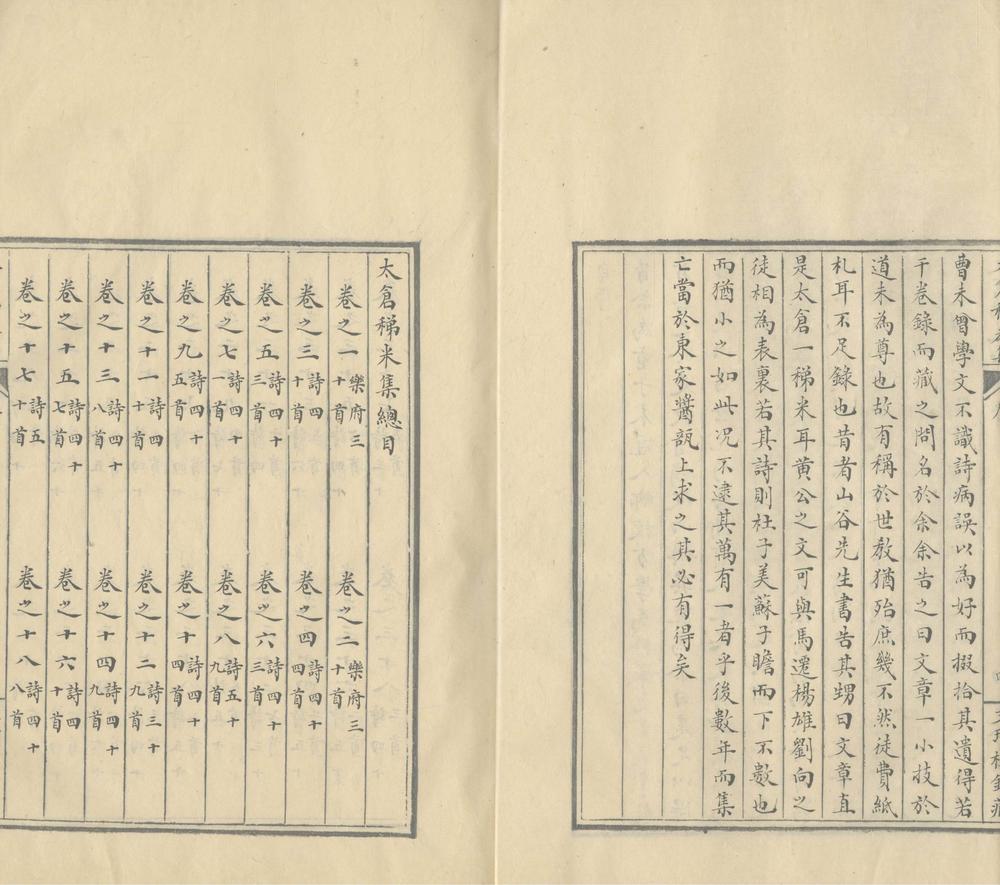 曹未曾學文不識詩病誤以為好而掇拾其遺得若
干卷錄而藏之問名於余余告之曰文章一小技於
道未為尊也故有稱於世教猶殆庶幾不然徒費紙
札耳不足錄也昔者山谷先生書告其甥曰文章直
是太倉一稊米耳黃公之文可與馬遷楊雄劉向之
徒相為表裏若其詩則杜子美蘇子瞻而下不數也
而猶小之如此况不逮其萬有一者乎後數年而集
亡當於東家醬瓿上求之其必有得矣
太倉稊米集總目
卷之一樂府三十首 卷之二樂府三十首
卷之三詩四十首 卷之四詩四十四首
卷之五詩四十三首 卷之六詩四十三首
卷之七詩四十一首 卷之八詩五十九首
卷之九詩四十五首 卷之十詩四十四首
卷之十一詩四十首 卷之十二詩三十九首
卷之十三詩四十八首 卷之十四詩四十九首
卷之十五詩四十七首 卷之十六詩四十首
卷之十七詩五十首 卷之十八詩四十八首